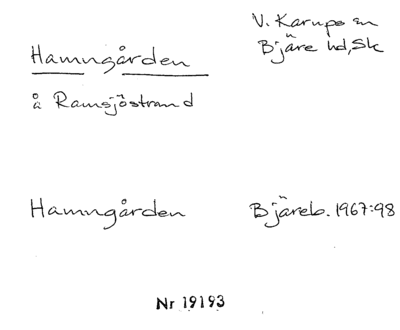 V. Karups sn
Bjäre hd, Sk
Hamngården
å Ramsjöstrand
Hamngården Bjäreb. 1967:98
Nr 19193